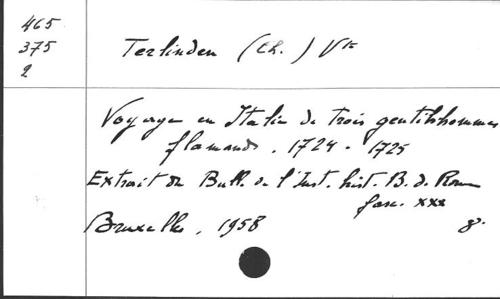 465
375
2
Terlinden (Ch.) Vte
Voyage en Italie de trois gentilshommes
flamands. 1724-1725
Extrait du Bull. de l'Inst. hist. B. de Rome
fasc. xxx
Bruxelles, 1958 8°.